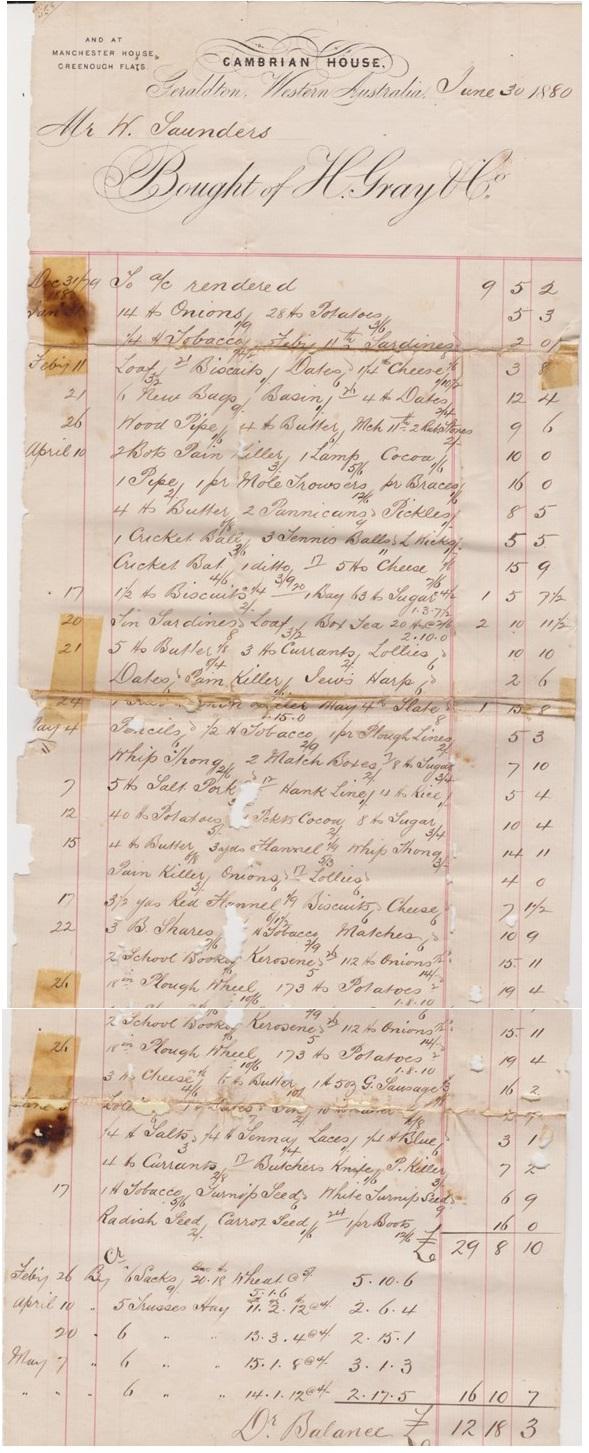 AND AT
MANCHESTER HOUSE,
GREENOUGH FLATS.
CAMBRIAN HOUSE.
Geraldton, Western Australia, June 30 1880
Mr W. Saunders
Bought of H. Gray & Co.
Dec 31/79 To a/c rendered 9 5 2
14 lbs Onions, 28 lbs Potatoes 5 3
1/4 lb Tobacco Feby 11th Sardines 2 0
Feby 11 Loaf, Biscuits, Dates, 1/4 Cheese 3 8
21 6 New Bags, Basin, 4 lbs Dates 12 4
26 Wood Pipe, 4 lbs Butter, Mch 11th 2 9 6
April 10 2 Bots Pain Killer, 1 Lamp, Cocoa 10 0
1 Pipe, 1 pr Mole Trowsers, pr Braces 16 0
4 lbs Butter, 2 Pannicans, Pickles 8 5
1 Cricket Ball, 3 Tennis Balls, 5 5
Cricket Bat, 1 ditto, 17 5 lbs Cheese 15 9
17 1 1/2 lbs Biscuits 1 Bag 63 lbs Sugar 1 5 7 1/2
20 Tin Sardines, Loaf, 1 Box Tea 20 lbs 2 10 11 1/2
21 5 lbs Butter, 3 lbs Currants, Lollies 10 10
Dates, Pain Killer, Jews Harp 2 6
24 May 4th Slate 1 15 8
May 4 Pencils, 1/2 lb Tobacco, 1 pr Plough Lines 5 3
Whip Thong, 2 Match Boxes, 8 lbs Sugar 7 10
7 5 lbs Salt Pork, Hank Line, 4 lbs Rice 5 4
12 40 lbs Potatoes, Cocoa, 8 lbs Sugar 10 4
15 4 lbs Butter, 3 yds Flannel, Whip Thong 14 11
Pain Killer, Onions, 17 Lollies 4 0
17 3 1/2 yds Red Flannel, Biscuits, Cheese 7 1 1/2
22 3 B. Shares, Tobacco, Matches 10 9
2 School Books, Kerosene, 112 lbs Onions 15 11
26 18 in Plough Wheel, 173 lbs Potatoes 19 4
2 School Books, Kerosene, 112 lbs Onions 15 11
26 18 in Plough Wheel, 173 lbs Potatoes 19 4
3 lbs Cheese, 6 lbs Butter, 1 lb 5 oz G. Sausage 16 2
1/4 lb Salts, 1/4 lb Senna, Laces, 1/4 lb Blue 3 1
4 lbs Currants, 17 Butchers Knife, P. Killer 7 2
17 1 lb Tobacco, Turnip Seed, White Turnip Seed 6 9
Radish Seed, Carrot Seed, 24 1 pr Boots 16 0
£ 29 8 10
Cr
Feby 26 By 6 Sacks, 20.18 Wheat @ 5/ 5.10.6
April 10 " 5 Trusses Hay 11.2.12 @ 4/ 2.6.4
20 " 6 " " 13.3.4 @ 4/ 2.15.1
May 7 " 6 " " 15.1.8 @ 4/ 3.1.3
" " " 6 " " 14.1.12 @ 4/ 2.17.5 16 10 7
Dr Balance £ 12 18 3